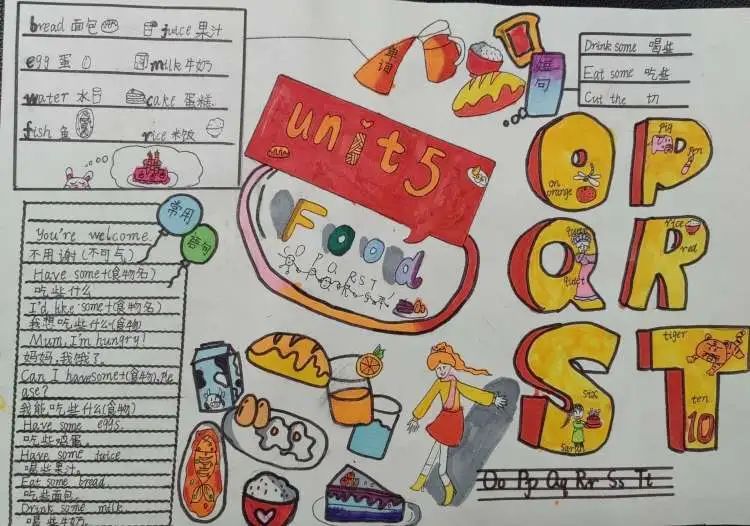 bread 面包 juice 果汁
egg 蛋 milk 牛奶
water 水 cake 蛋糕
fish 鱼 rice 米饭
单词
短句
Drink some 喝些
Eat some 吃些
Cut the 切
unit 5
Food
O P Q R S T
常用
语句
You're welcome.
不用谢(不可气)
Have some+(食物名)
吃些什么
I'd like some+(食物名)
我想吃些什么(食物)
Mum, I'm hungry!
妈妈,我饿了.
Can I have some+(食物),ple
ase?
我能吃些什么(食物)
Have some eggs.
吃些鸡蛋.
Have some juice
喝些果汁.
Eat some bread.
吃些面包.
Drink some milk.
喝些牛奶.
O
on
orange
P
pig
pen
Q
queen
quiet
R
rice
red
S
six
sarah
T
tiger
ten
10
Oo Pp Qq Rr Ss Tt